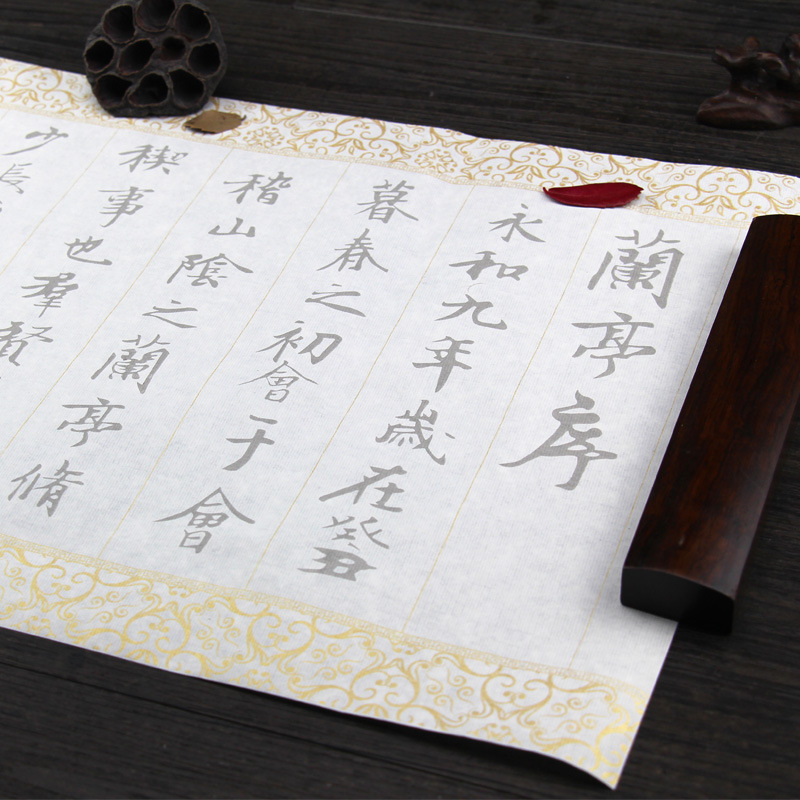 蘭亭序
永和九年歲在癸丑
暮春之初會于會
稽山陰之蘭亭脩
禊事也羣賢
少長